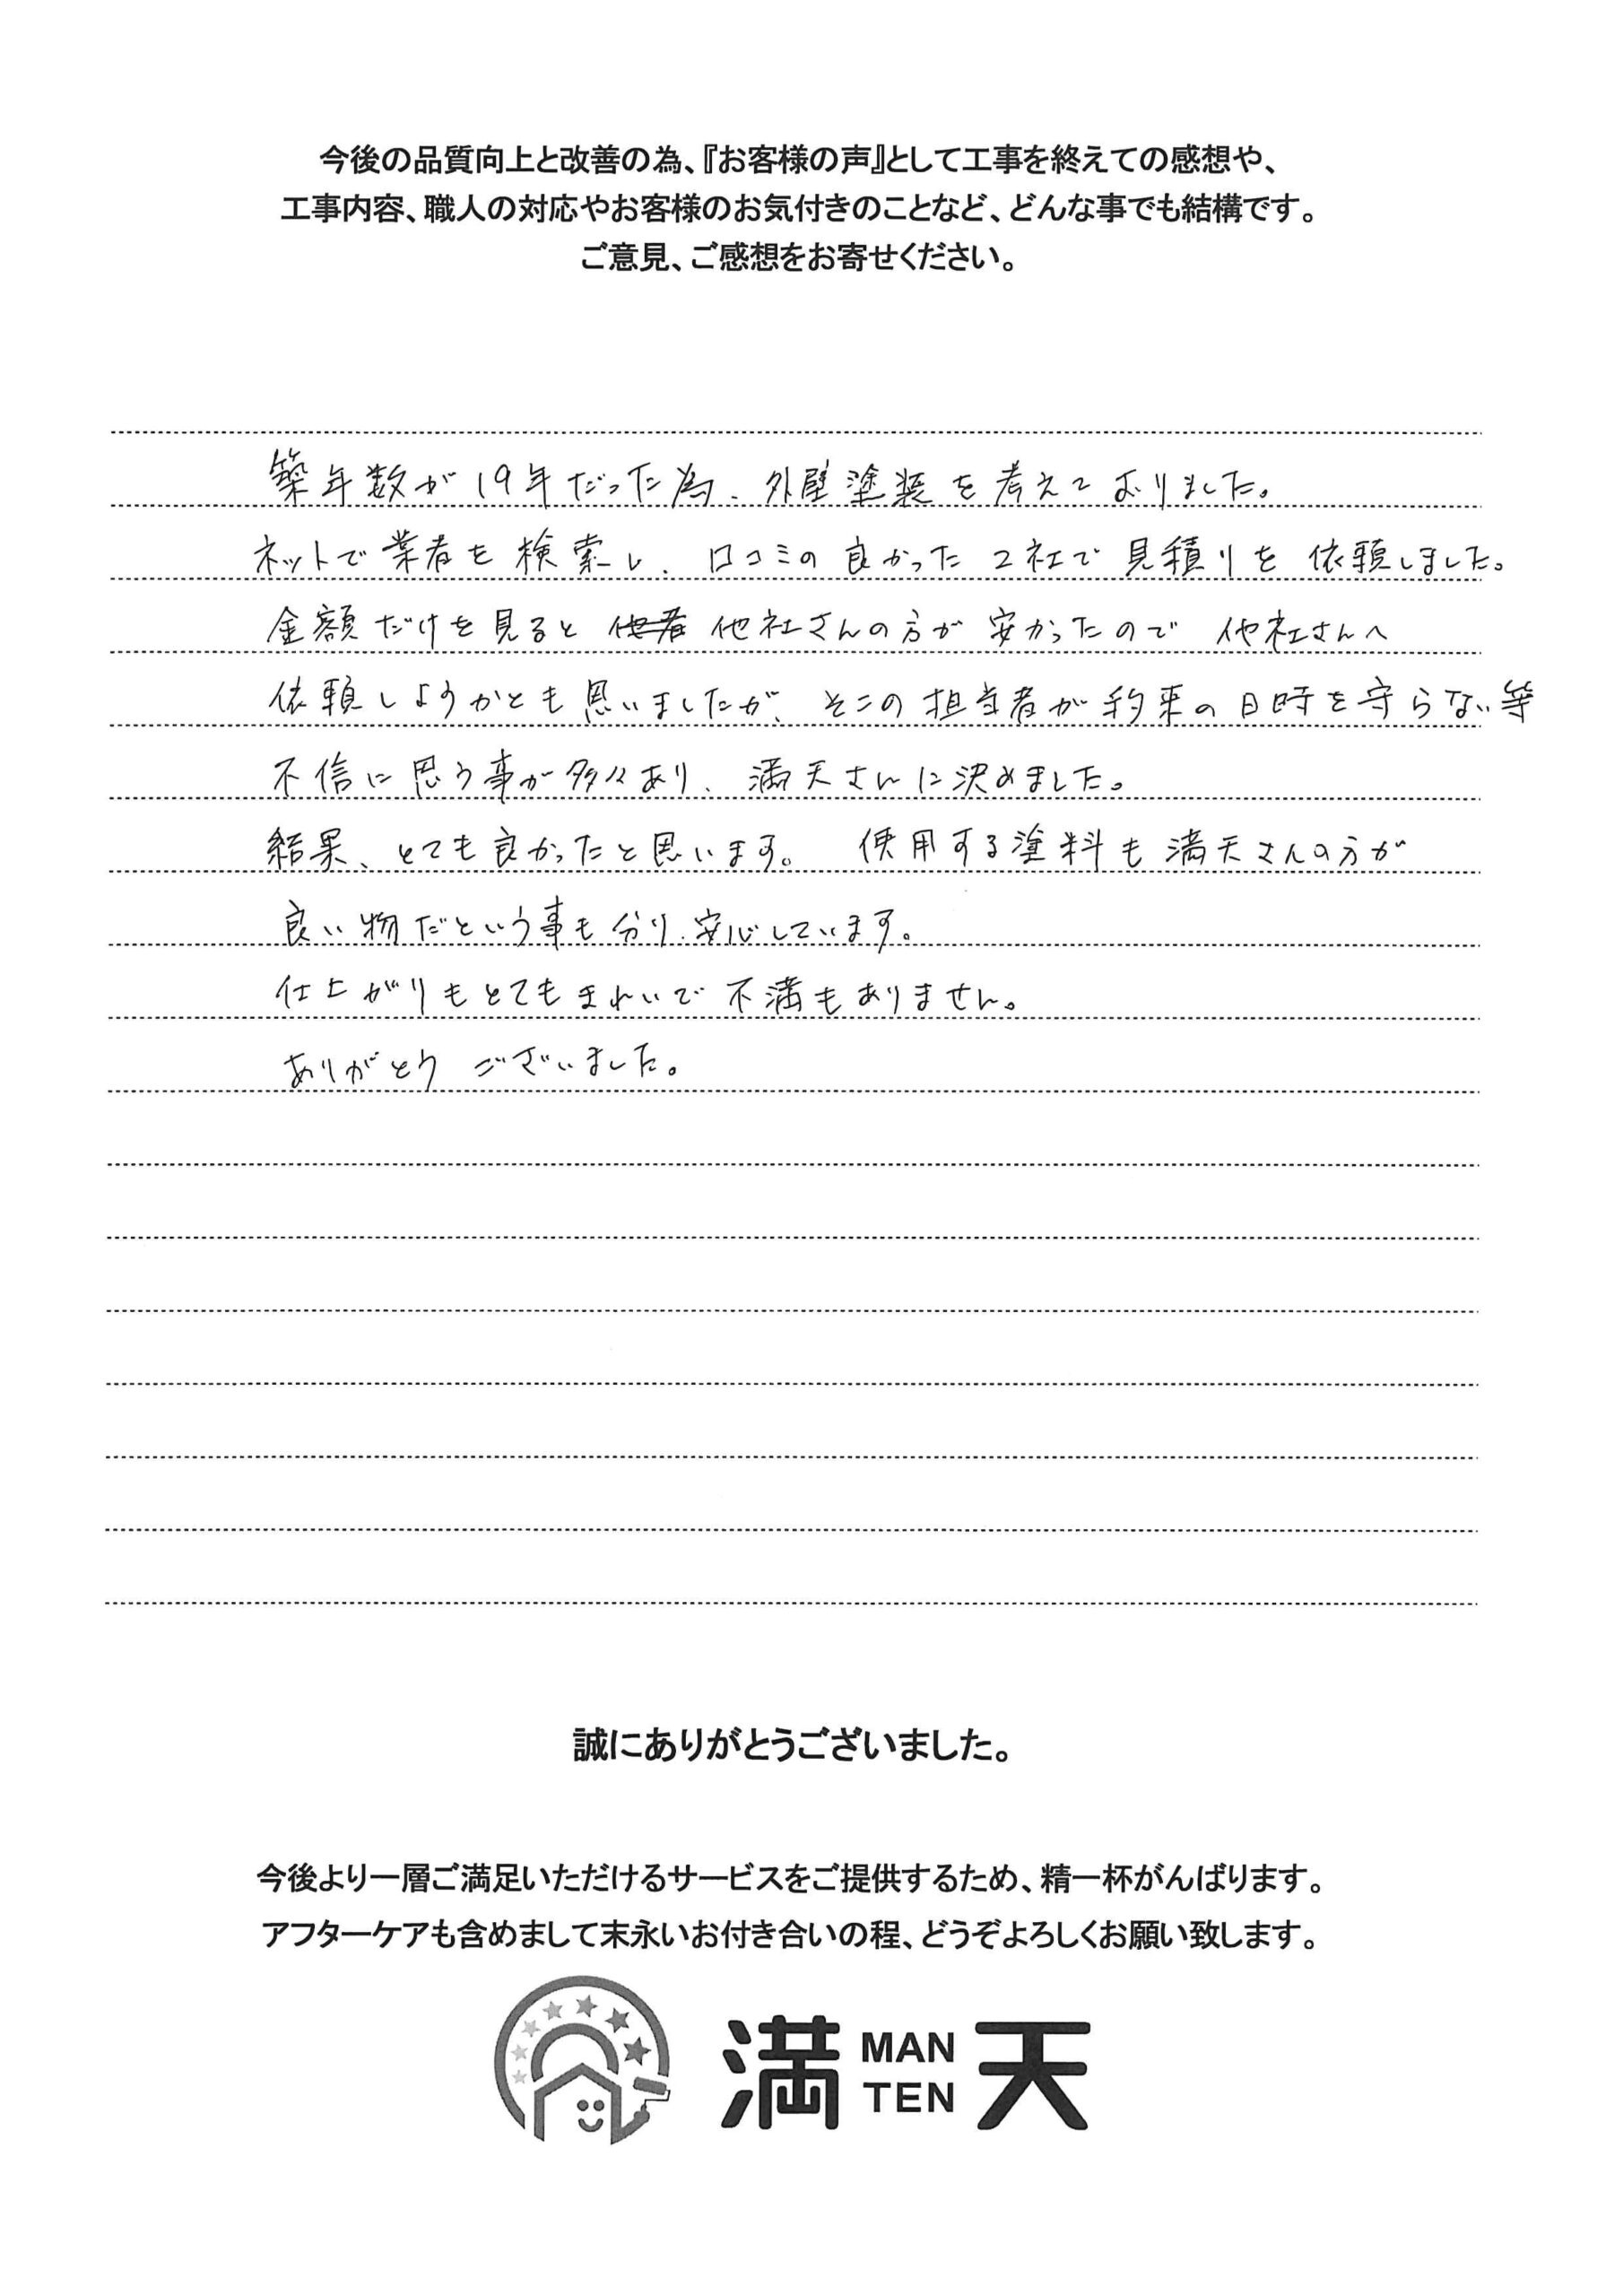 今後の品質向上と改善の為、『お客様の声』として工事を終えての感想や、
工事内容、職人の対応やお客様のお気付きのことなど、どんな事でも結構です。
ご意見、ご感想をお寄せください。
築年数が19年だった為、外壁塗装を考えておりました。
ネットで業者を検索し、口コミの良かった2社で見積りを依頼しました。
金額だけを見ると他社さんの方が安かったので他社さんへ
依頼しようかとも思いましたが、そこの担当者が約束の日時を守らない等
不信に思う事が多々あり、満天さんに決めました。
結果、とても良かったと思います。使用する塗料も満天さんの方が
良い物だという事も分り、安心しています。
仕上がりもとてもきれいで不満もありません。
ありがとうございました。
誠にありがとうございました。
今後より一層ご満足いただけるサービスをご提供するため、精一杯がんばります。
アフターケアも含めまして末永いお付き合いの程、どうぞよろしくお願い致します。
満天 MAN TEN